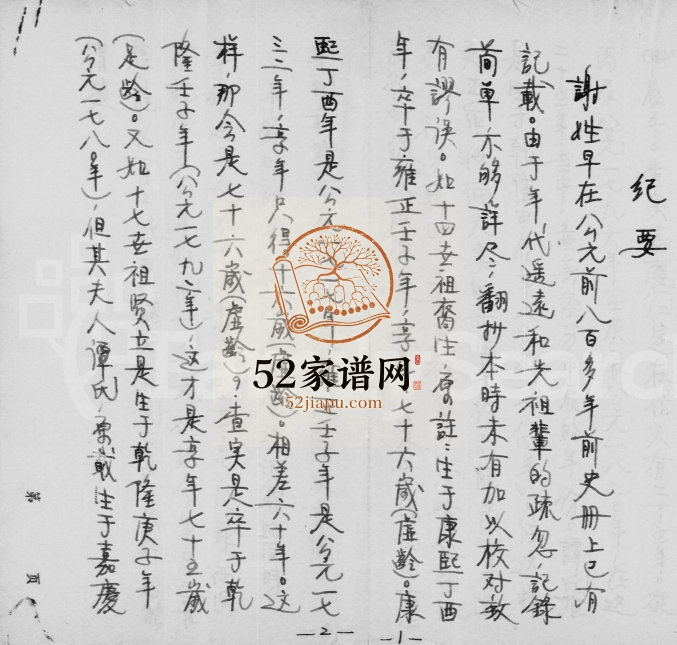 纪要
謝姓早在公元前八百多年前史册上已有
記載。由于年代遥远和先祖輩的疏忽,記錄
简单不够詳尽,翻抄本時未有加以校对致
有謬误。如十四世祖裔生,原註:生于康熙丁酉
年,卒于雍正壬子年,享 七十六歲(虛齡)。康
熙丁酉年是公元 一七 年,雍正壬子年是公元一七
三二年,享年只得 十六歲 。相差六十年。这
样,那会是七十六歲(虛齡)?查实是卒于乾
隆壬子年(公元一七九二年),这才是享年七十五歲
(足齡)。又如十七世祖贤立是生于乾隆庚子年
(公元一七八〇年),但其夫人譚氏,原載生于嘉慶
—1—
—2—
第 頁
52家谱网
52jiapu.com